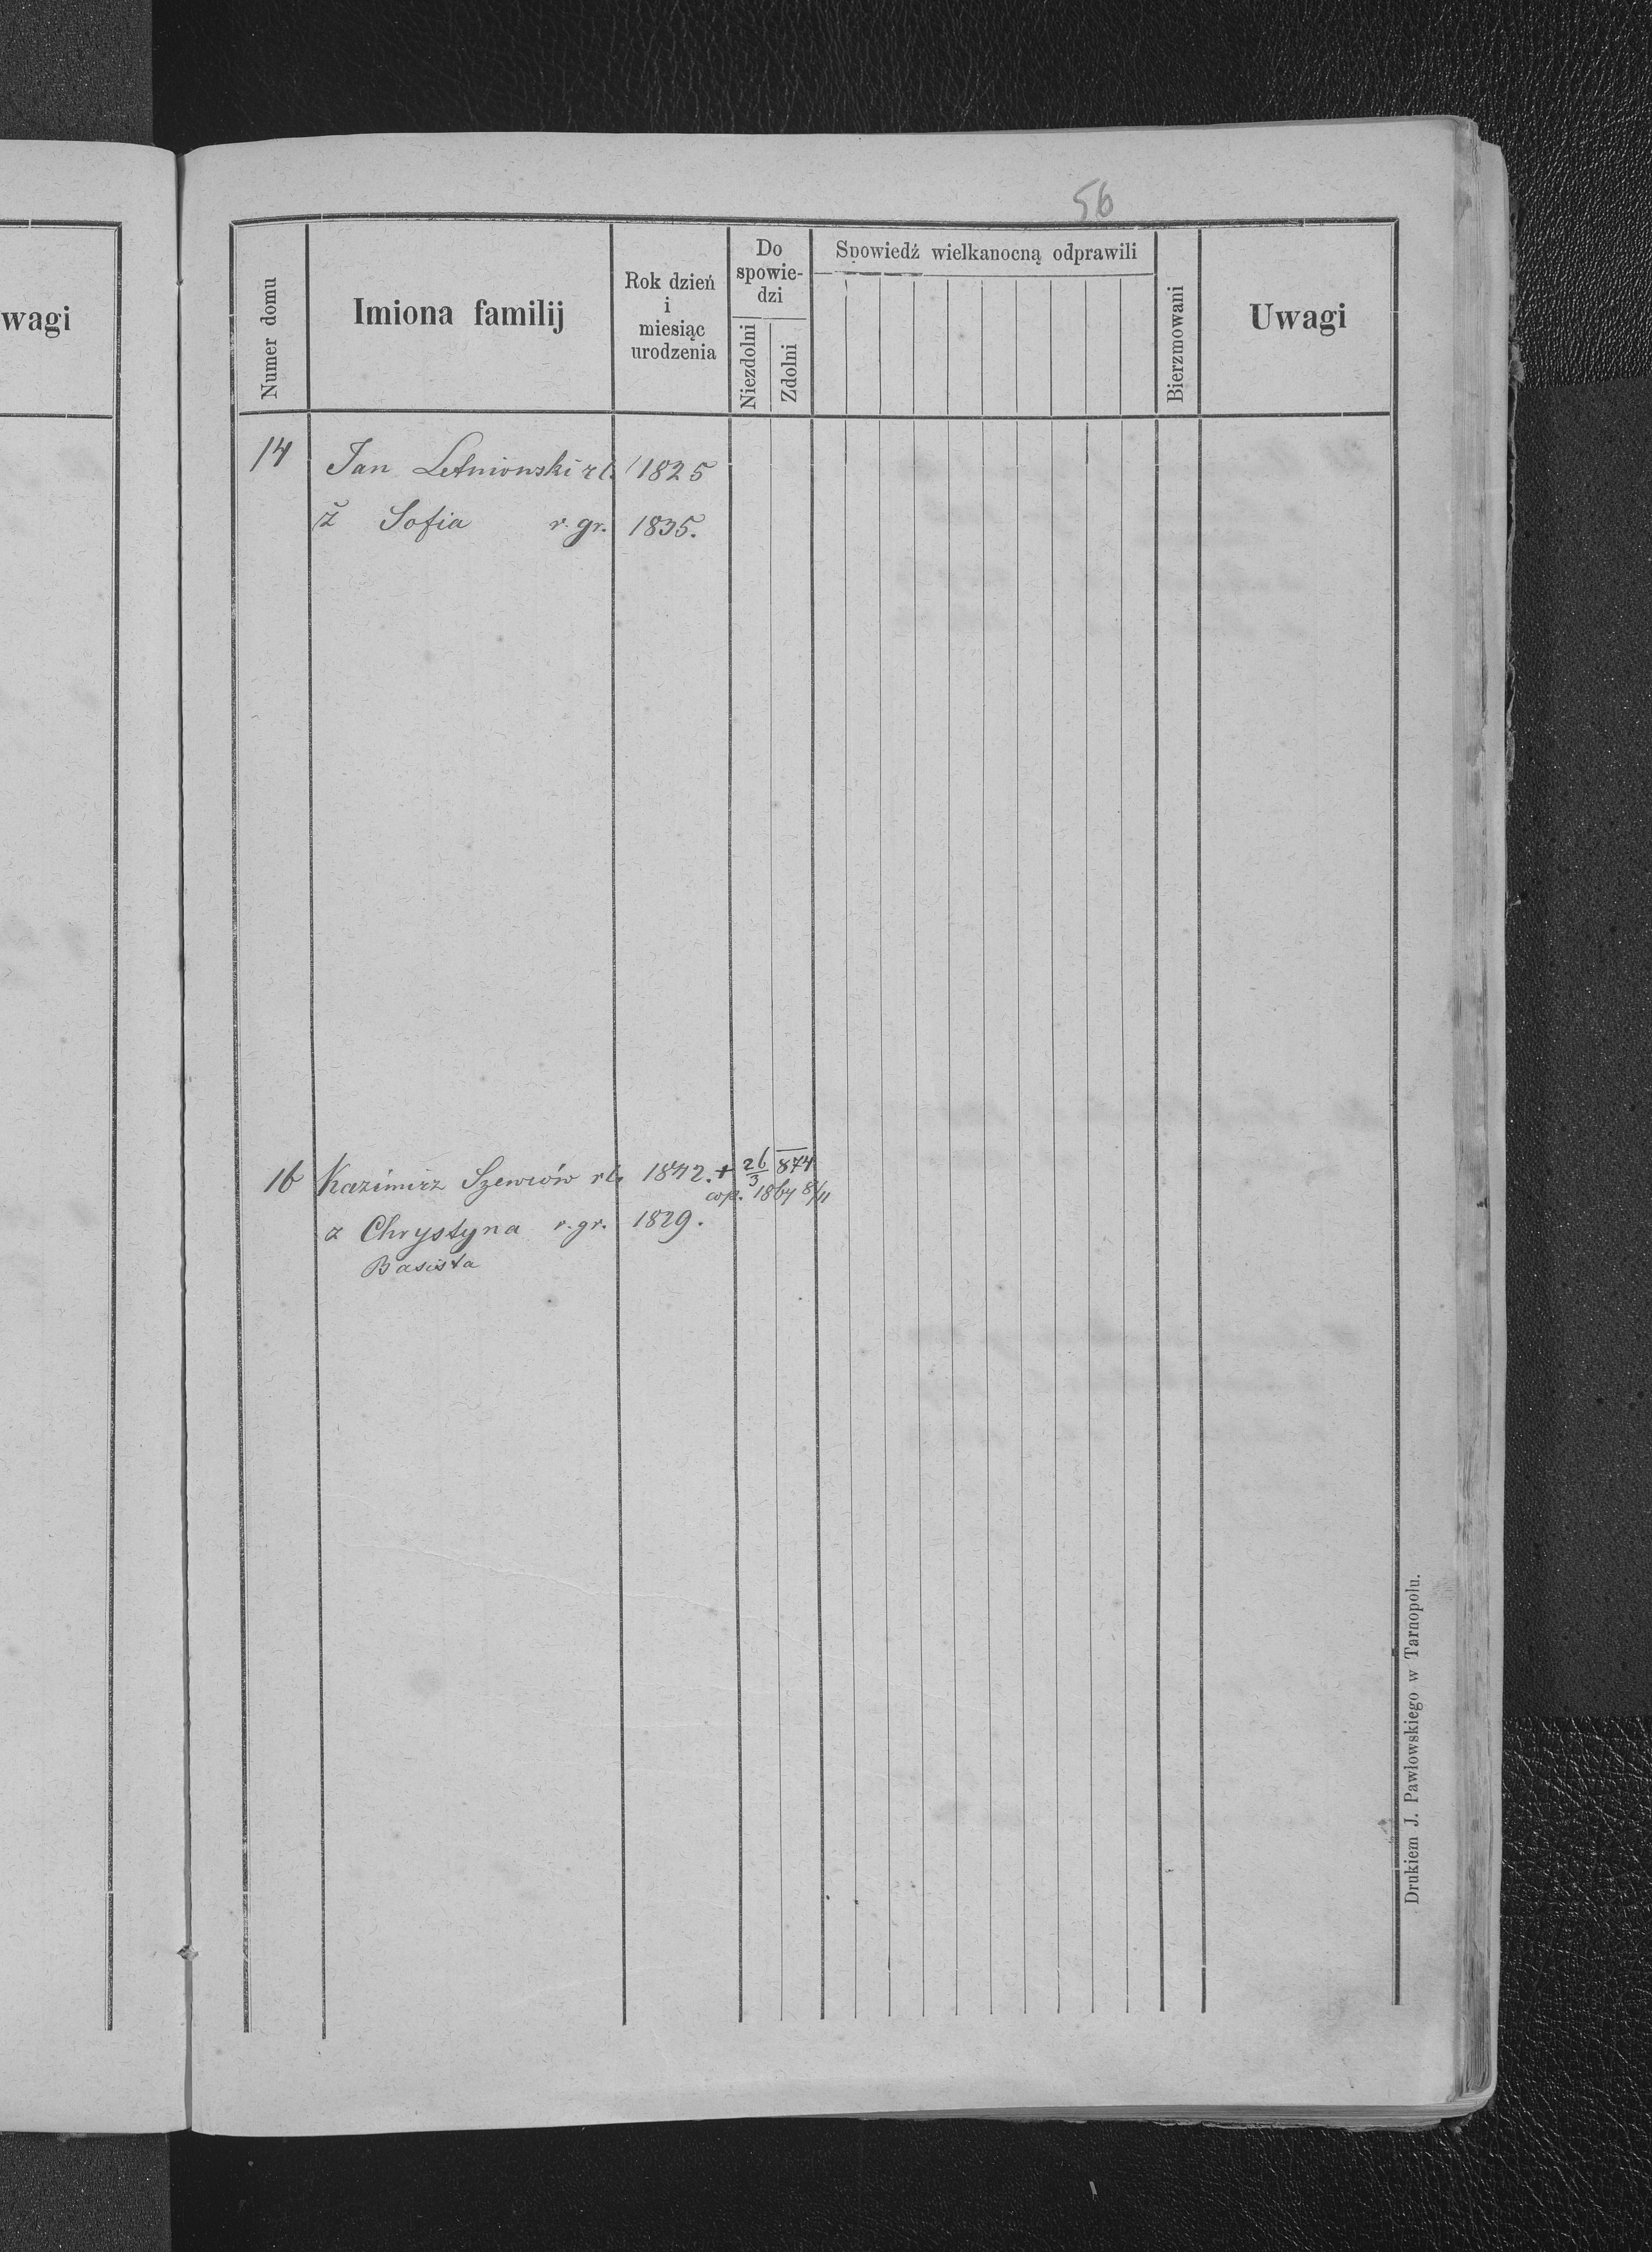 56
wagi
Numer domu
Imiona familij
Rok dzień
i
miesiąc
urodzenia
Do
spowie-
dzi
Niezdolni
Zdolni
Spowiedź wielkanocną odprawili
Bierzmowani
Uwagi
14 Jan Letniowski rł. 1825
ż Sofia r. gr. 1835.
16 Kazimirz Szewców rł. 1842. + 26/3 874
cop. 1867 8/11
ż Chrystyna r. gr. 1829.
Basista
Drukiem J. Pawłowskiego w Tarnopolu.